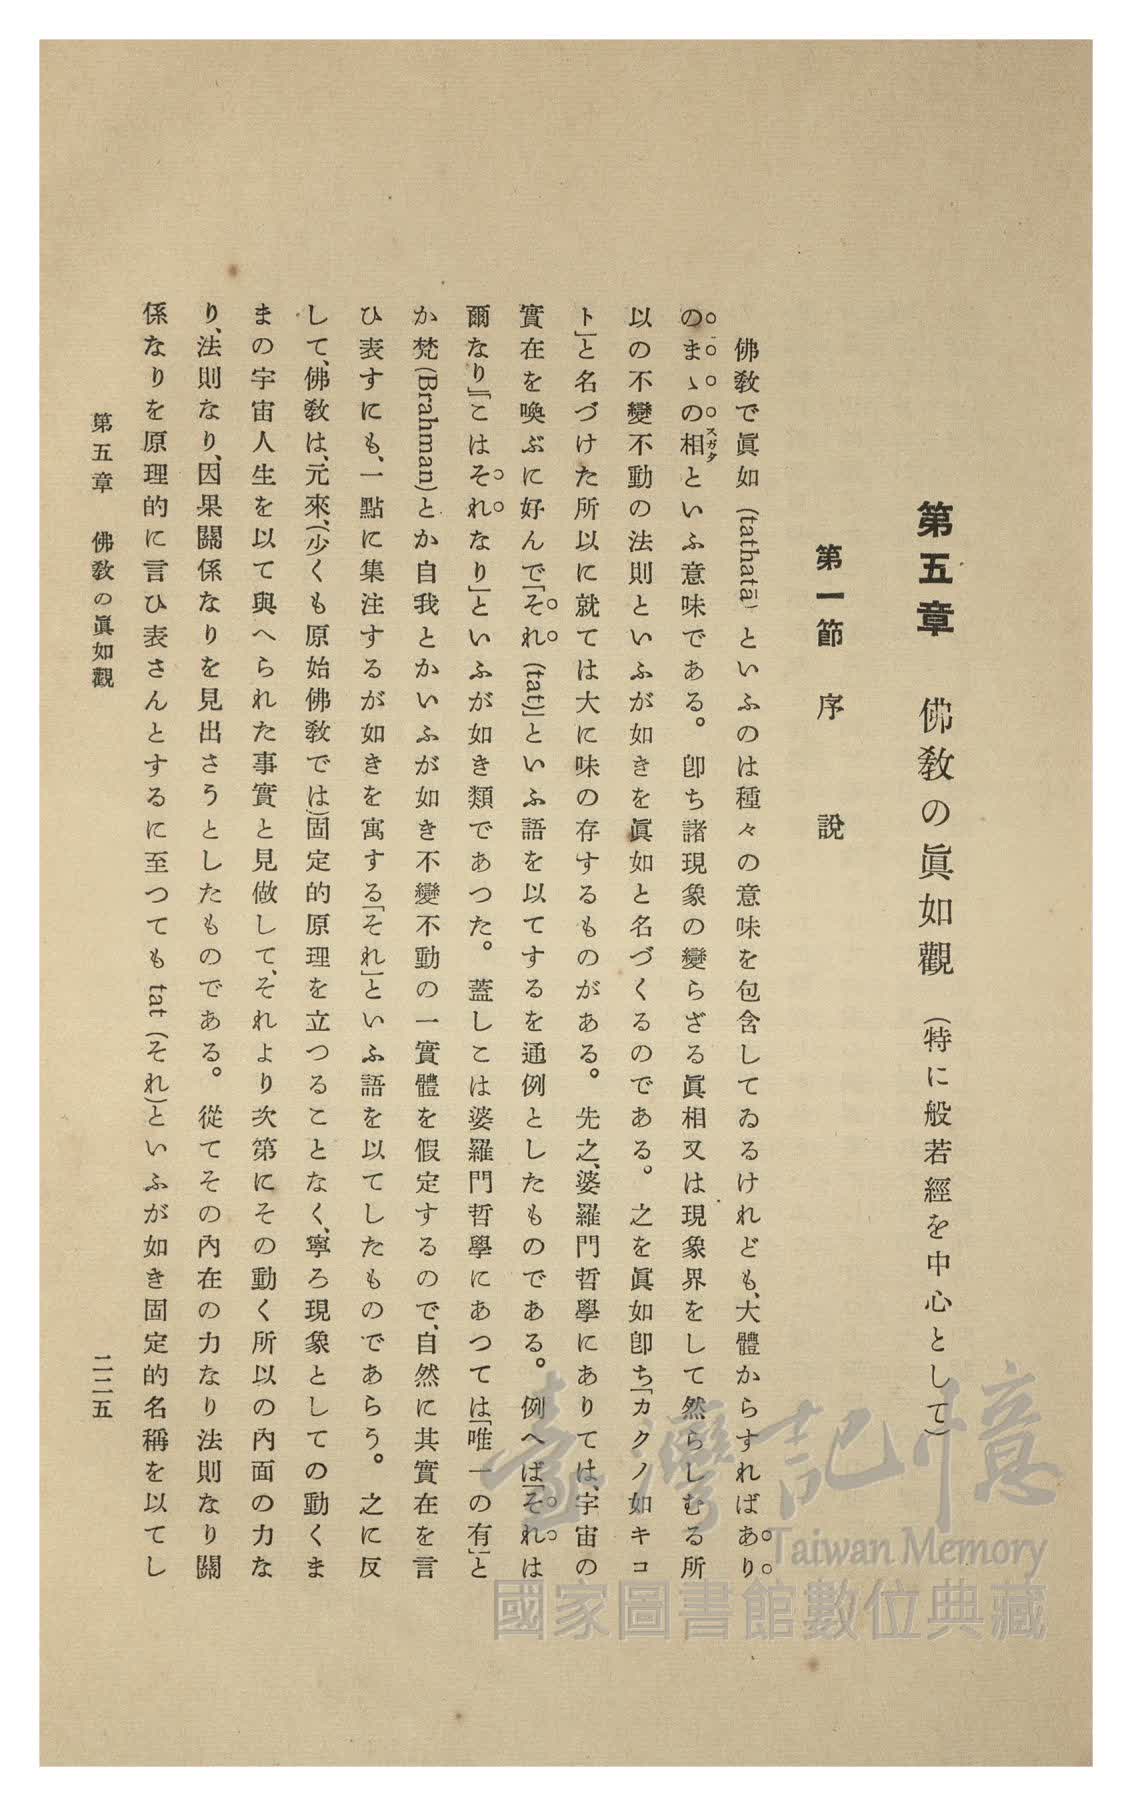 第五章　佛敎の眞如觀（特に般若經を中心として）
第一節　序　說
佛敎で眞如（tathatā）といふのは種々の意味を包含してゐるけれども、大體からすればあり
のまゝの相スガタといふ意味である。卽ち諸現象の變らざる眞相又は現象界をして然らしむる所
以の不變不動の法則といふが如きを眞如と名づくるのである。之を眞如卽ち「カクノ如キコ
ト」と名づけた所以に就ては大に味の存するものがある。先之、婆羅門哲學にありては、宇宙の
實在を喚ぶに好んで「それ（tat）」といふ語を以てするを通例としたものである。例へば「それは
爾なり」『こはそれなり」といふが如き類であつた。蓋しこは婆羅門哲學にあつては「唯一の有」と
か梵（Brahman）とか自我とかいふが如き不變不動の一實體を假定するので、自然に其實在を言
ひ表すにも、一點に集注するが如きを寓する「それ」といふ語を以てしたものであらう。之に反
して、佛敎は、元來、（少くも原始佛敎では）固定的原理を立つることなく、寧ろ現象としての動くま
まの宇宙人生を以て與へられた事實と見做して、それより次第にその動く所以の內面の力な
り、法則なり、因果關係なりを見出さうとしたものである。從てその內在の力なり法則なり關
係なりを原理的に言ひ表さんとするに至つても tat（それ）といふが如き固定的名稱を以てし
第五章　佛敎の眞如觀　二二五
臺灣記憶
Taiwan Memory
國家圖書館數位典藏